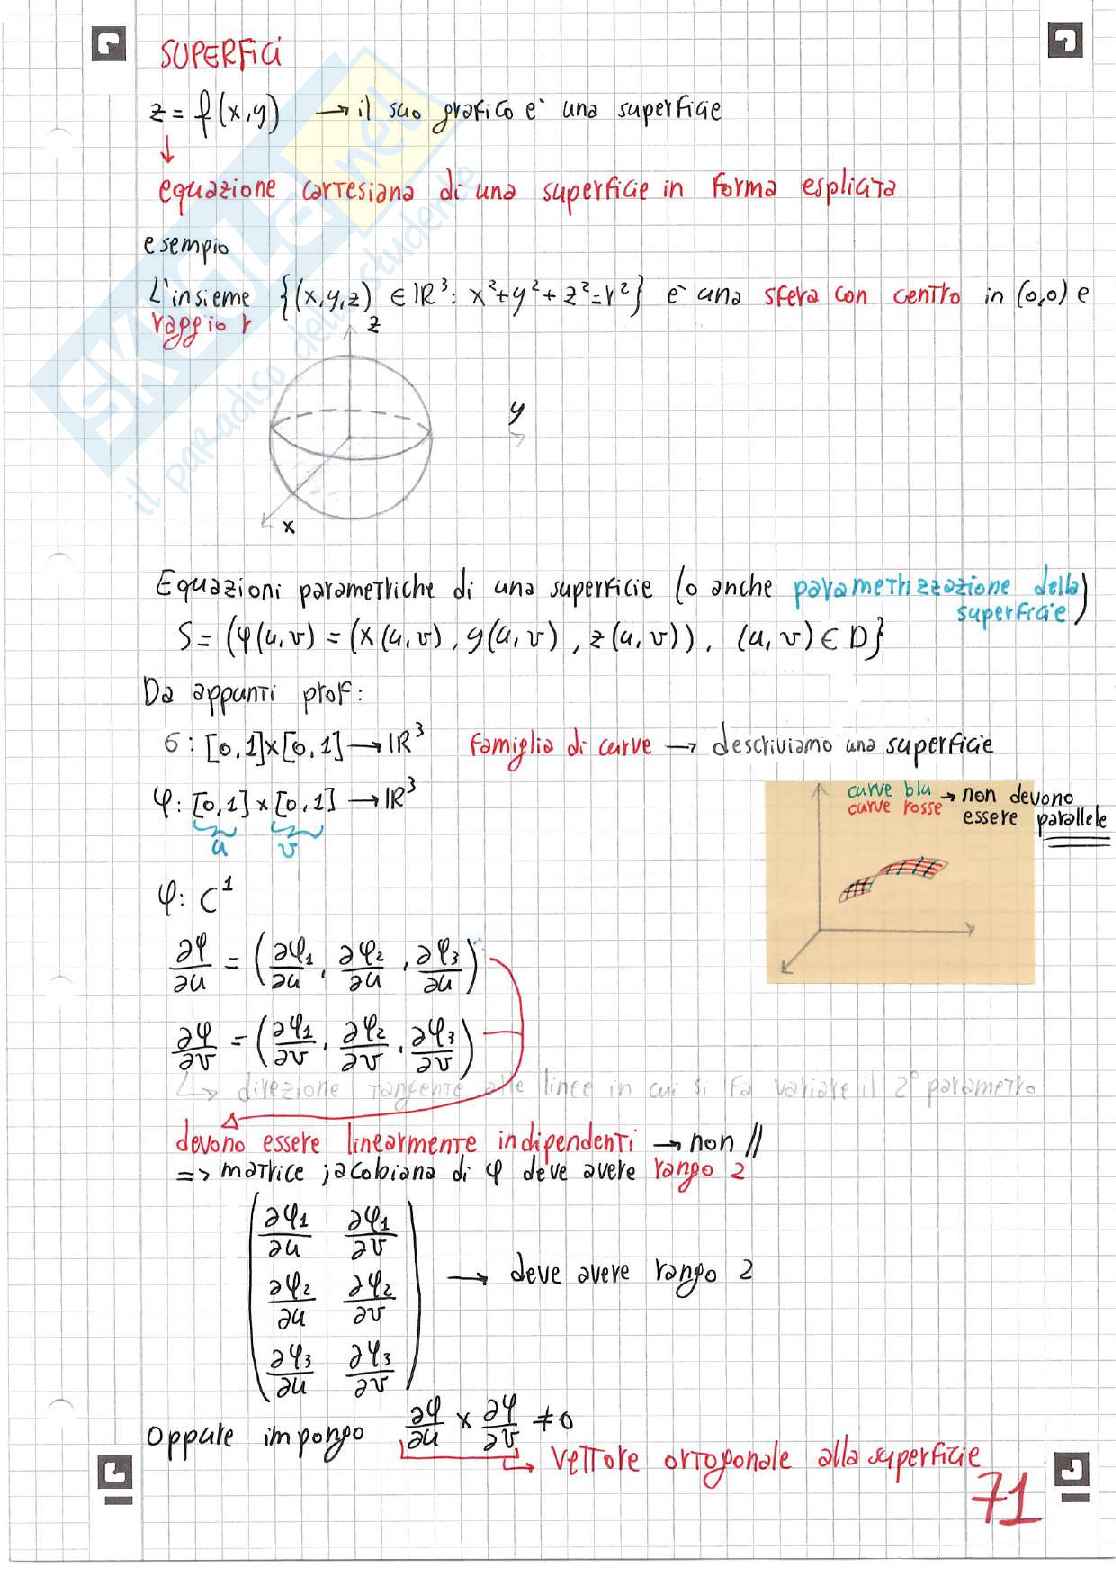 SUPERFICI
z = f(x,y) → il suo grafico è una superficie
↓
equazione cartesiana di una superficie in forma esplicita
esempio
L'insieme {(x,y,z) ∈ ℝ³: x²+y²+z²=r²} è una sfera con centro in (0,0) e
raggio r
z
y
x
Equazioni parametriche di una superficie (o anche parametrizzazione della
superficie)
S = (φ(u,v) = (x(u,v), y(u,v), z(u,v)), (u,v) ∈ D}
Da appunti prof:
σ: [0,1]×[0,1] → ℝ³ famiglia di curve → descriviamo una superficie
φ: [0,1]×[0,1] → ℝ³
u v
curve blu → non devono
curve rosse essere parallele
φ: C¹
∂φ/∂u = (∂φ₁/∂u, ∂φ₂/∂u, ∂φ₃/∂u)
∂φ/∂v = (∂φ₁/∂v, ∂φ₂/∂v, ∂φ₃/∂v)
↳ direzione tangente alle linee in cui si fa variare il 2° parametro
devono essere linearmente indipendenti → non //
=> matrice jacobiana di φ deve avere rango 2
∂φ₁/∂u ∂φ₁/∂v
∂φ₂/∂u ∂φ₂/∂v → deve avere rango 2
∂φ₃/∂u ∂φ₃/∂v
oppure impongo ∂φ/∂u × ∂φ/∂v ≠ 0
↳ vettore ortogonale alla superficie
71
SKUOLA.net
il paradiso dello studente